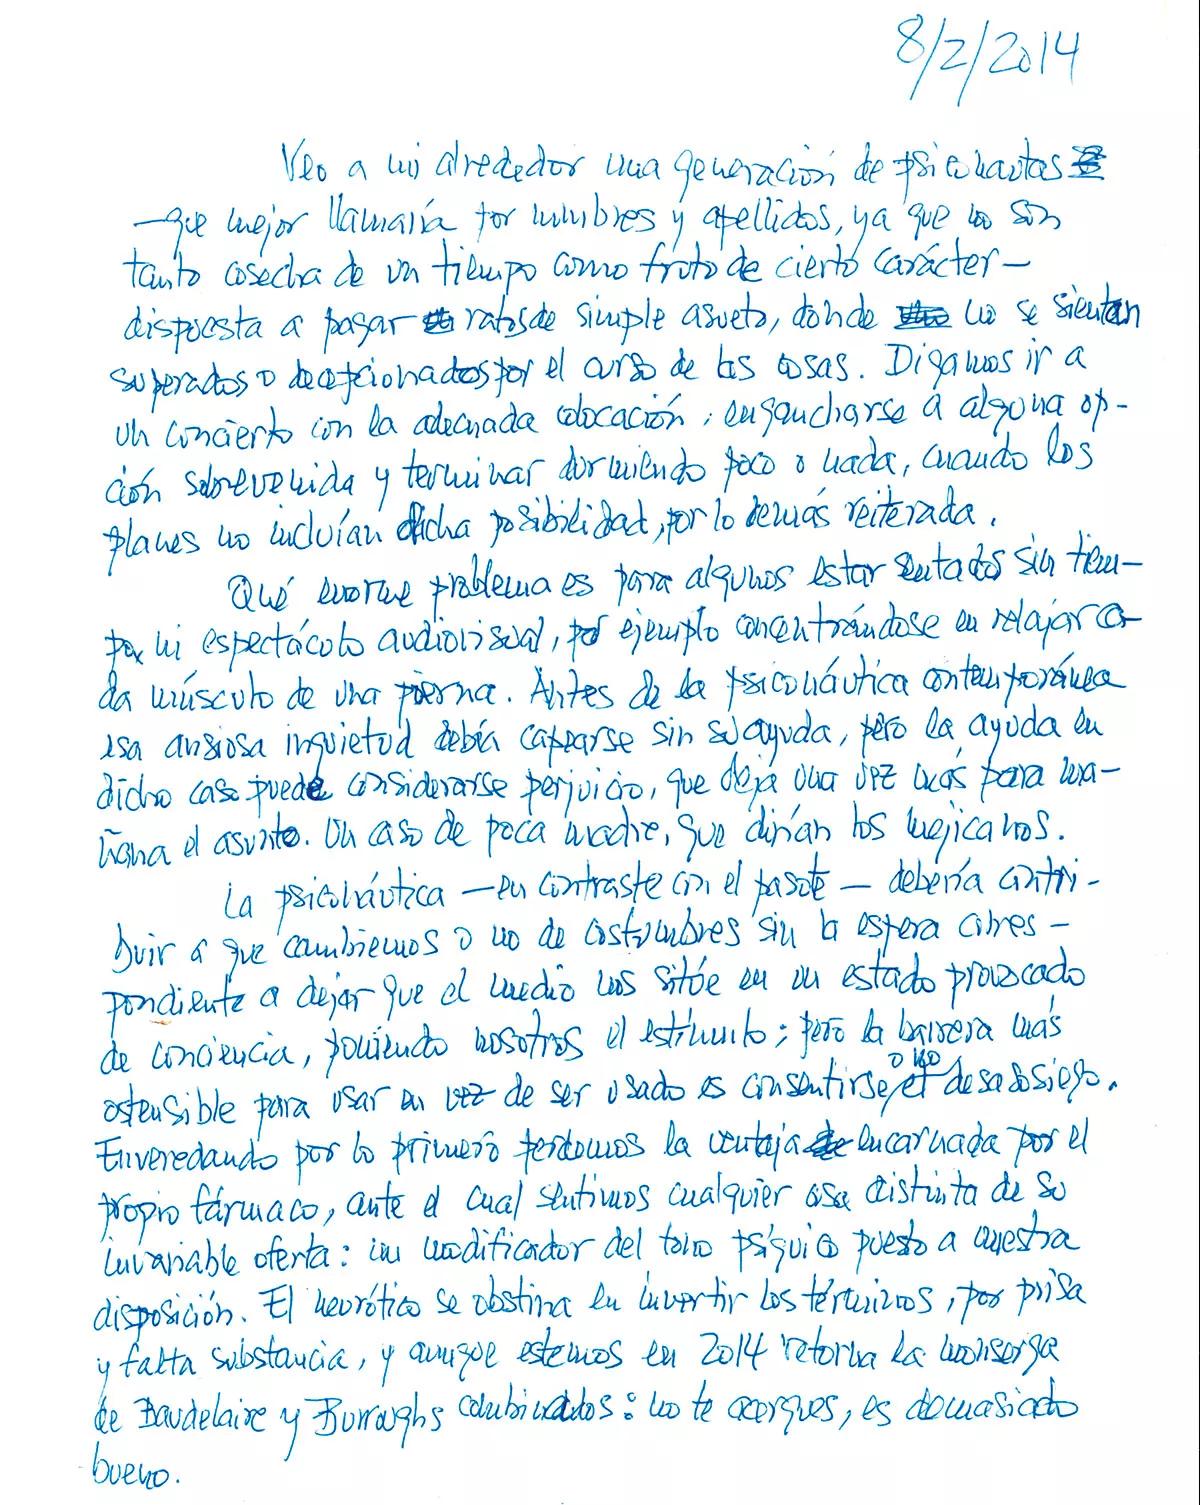 8/2/2014
Veo a mi alrededor una generación de psiconautas
—que mejor llamaría por nombres y apellidos, ya que no son
tanto cosecha de un tiempo como fruto de cierto carácter—
dispuesta a pagar ratos de simple asueto, donde no se sientan
superados o decepcionados por el curso de las cosas. Digamos ir a
un concierto con la adecuada colocación, engancharse a alguna op-
ción sobrevenida y terminar durmiendo poco o nada, cuando los
planes no incluían dicha posibilidad, por lo demás reiterada.
Qué enorme problema es para algunos estar sentados sin tiem-
po ni espectáculo audiovisual, por ejemplo concentrándose en relajar ca-
da músculo de una pierna. Antes de la psiconáutica contemporánea
esa ansiosa inquietud debía capearse sin su ayuda, pero la ayuda en
dicho caso puede considerarse perjuicio, que deja una vez más para ma-
ñana el asunto. Un caso de poca madre, que dirían los mejicanos.
La psiconáutica —en contraste con el pasote— debería contri-
buir a que cambiemos o no de costumbres sin la espera corres-
pondiente a dejar que el medio nos sitúe en un estado provocado
de conciencia, poniendo nosotros el estímulo; pero la barrera más
ostensible para usar en vez de ser usado es consentirse, o no el desasosiego.
Enveredando por lo primero perdemos la ventaja encarnada por el
propio fármaco, ante el cual sentimos cualquier cosa distinta de su
invariable oferta: un modificador del tono psíquico puesto a nuestra
disposición. El neurótico se obstina en invertir los términos, por prisa
y falta substancia, y aunque estemos en 2014 retorna la monserga
de Baudelaire y Burroughs combinados: no te acerques, es demasiado
bueno.